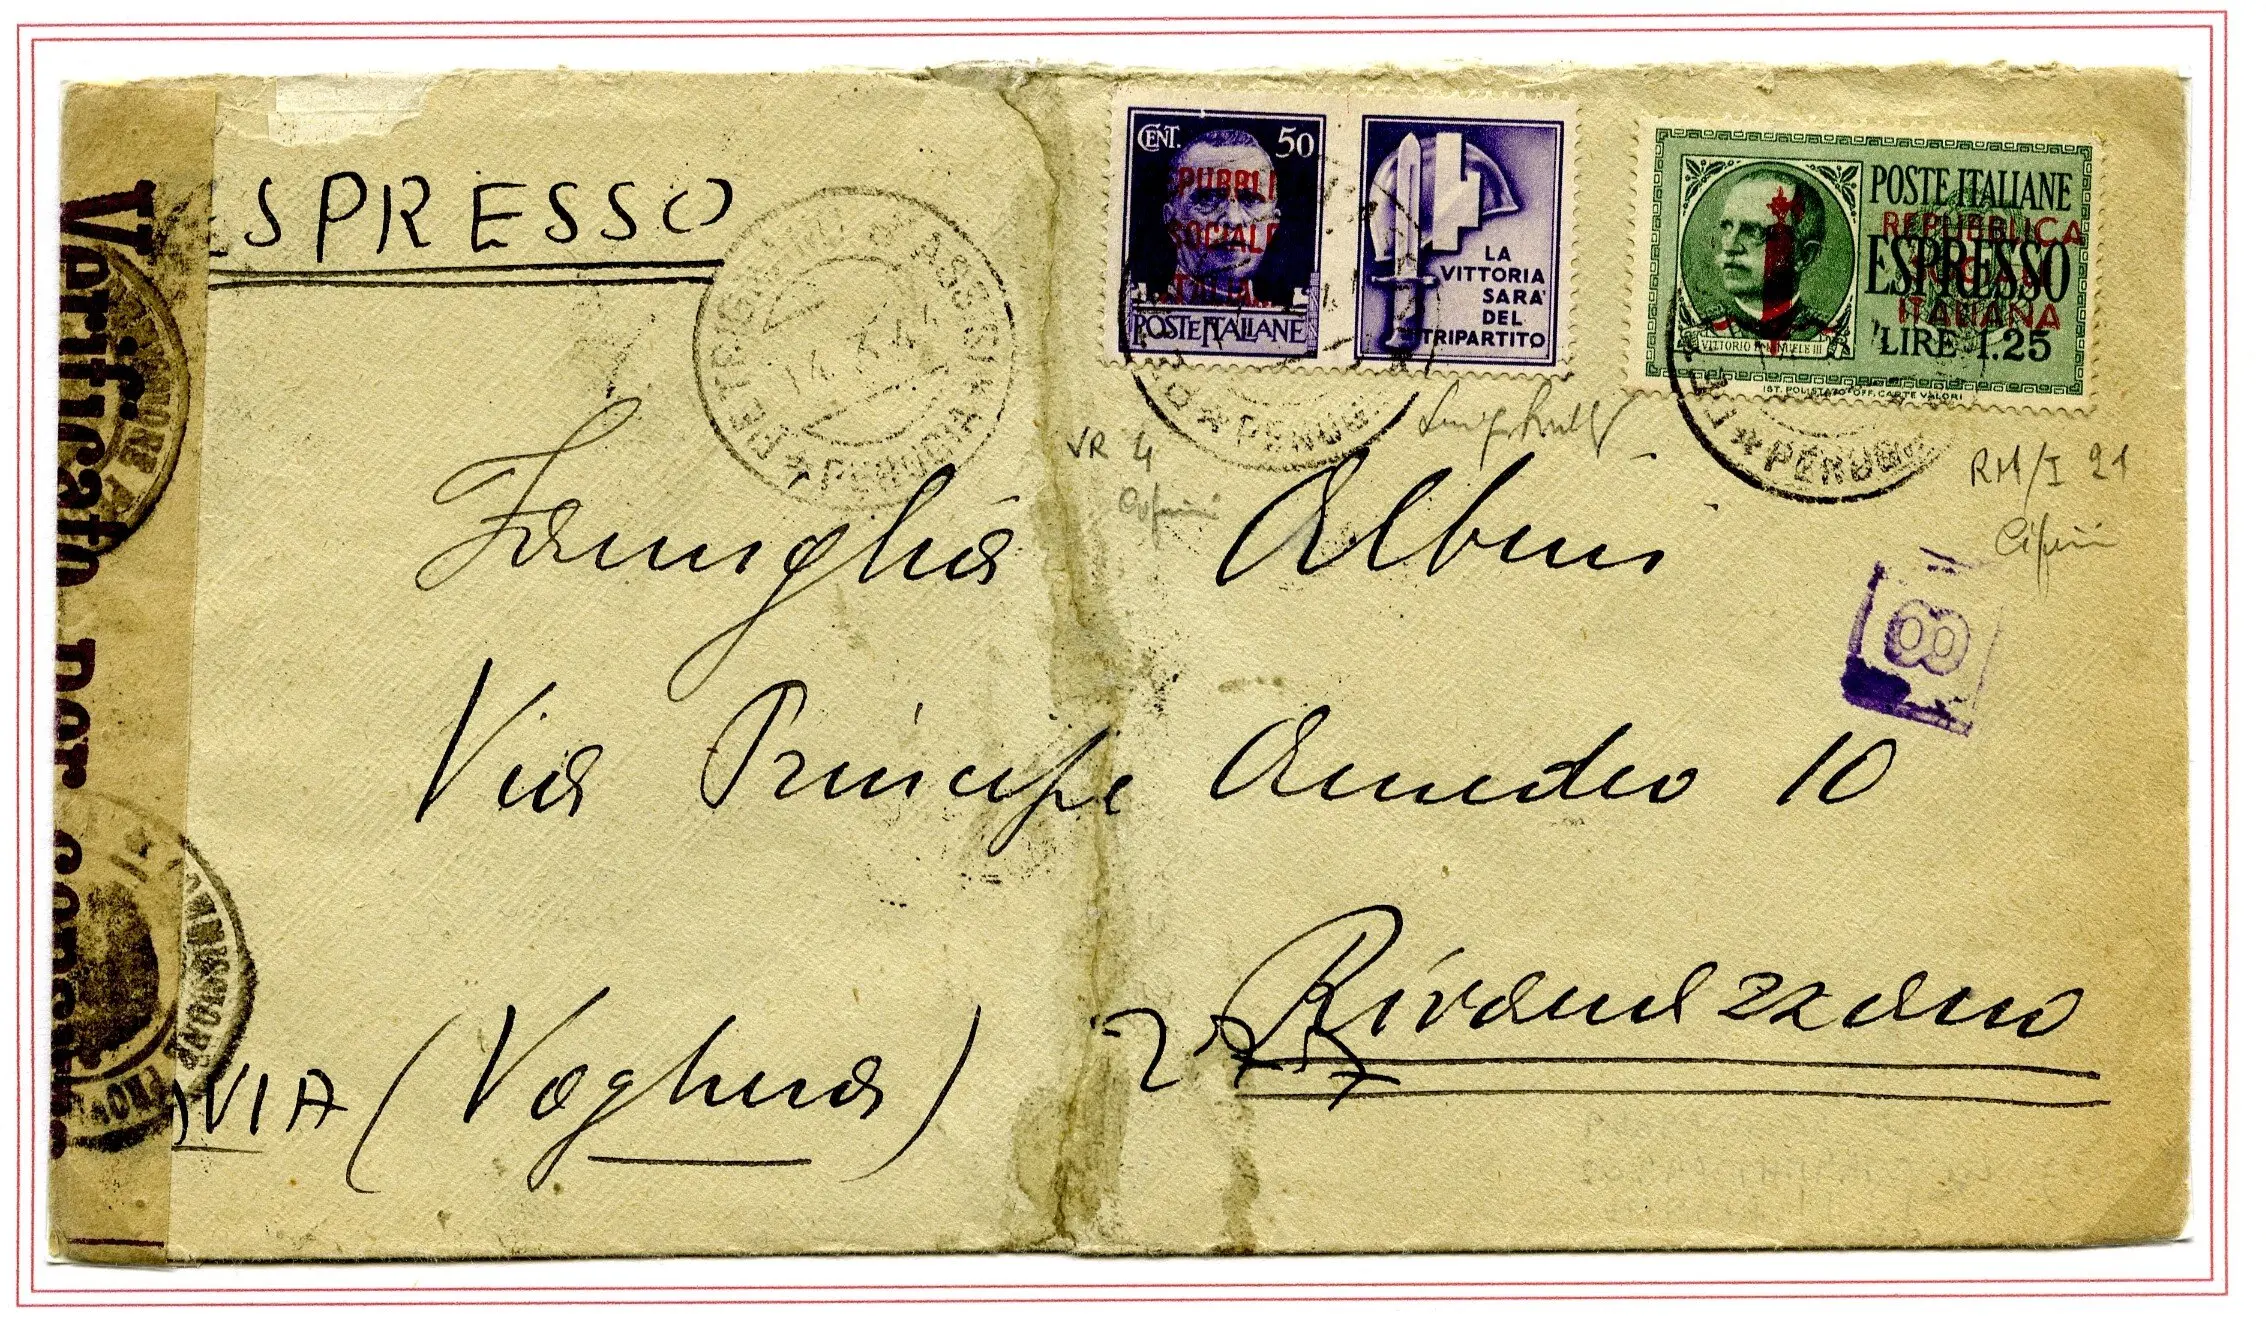 ESPRESSO
PETRIGNANO d'ASSISI
14.3.44
* PERUGIA *
CENT. 50
PUBBLI
SOCIALE
ITALIANA
POSTE ITALIANE
LA
VITTORIA
SARA'
DEL
TRIPARTITO
POSTE ITALIANE
REPUBBLICA
ESPRESSO
SOCIALE
ITALIANA
LIRE 1.25
VITTORIO EMANUELE III
IST. POLIGRAFICO OFF. CARTE VALORI
* PERUGIA
* PERUGIA
VR 4
RM/I 21
Verificato per censura
Famiglia Albini
8
Via Principe Amedeo 10
Rivanazzano
AVIA (Voghera)
PROV